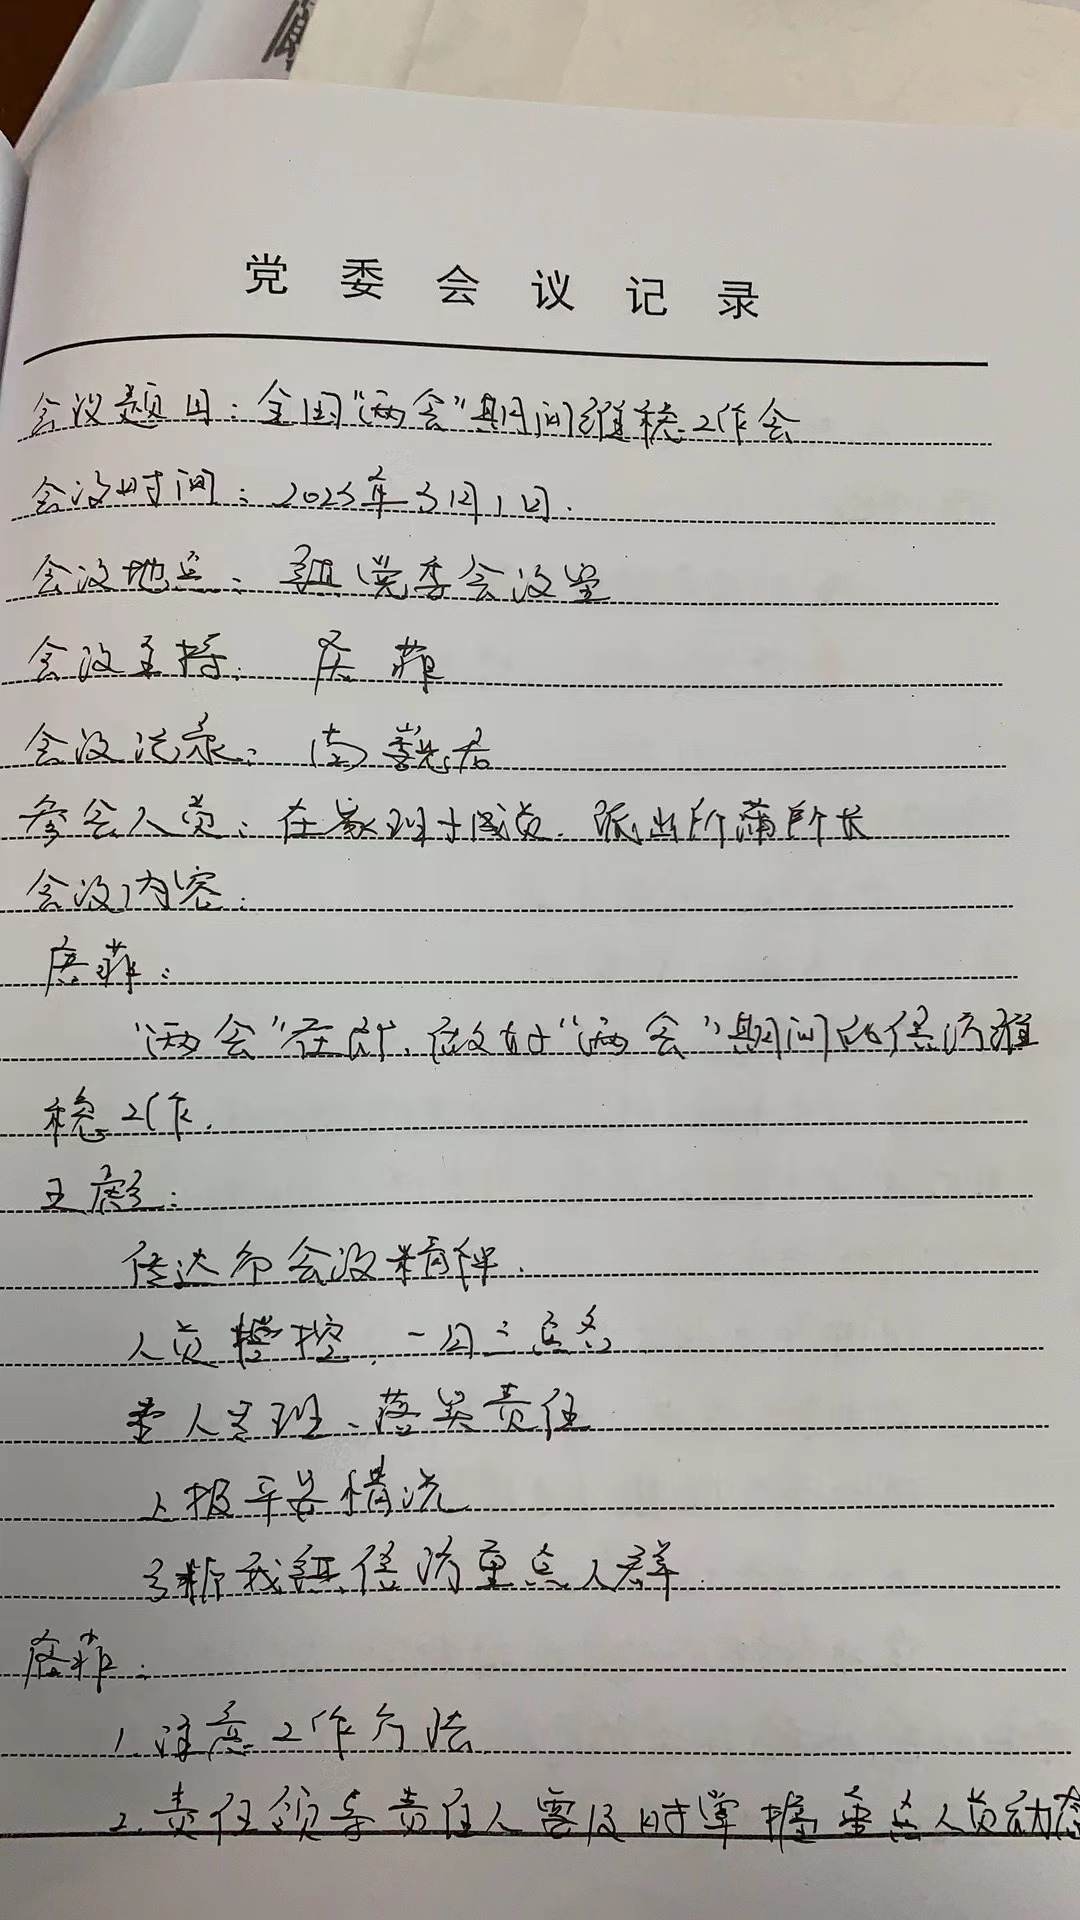 党委会议记录
会议题目：全国“两会”期间维稳工作会
会议时间：2023年3月1日.
会议地点：镇党委会议室
会议主持：唐菲
会议记录：南 君
参会人员：在家班子成员、派出所蒲所长
会议内容：
唐菲：
“两会”在即、做好“两会”期间的信访维
稳工作.
王彪：
传达市会议精神.
人员 控、一日三点名
专人 班、落实责任
上报平安情况
分析我镇信访重点人群.
唐菲：
1.注意工作方法
2.责任领导责任人要及时掌握重点人员动态